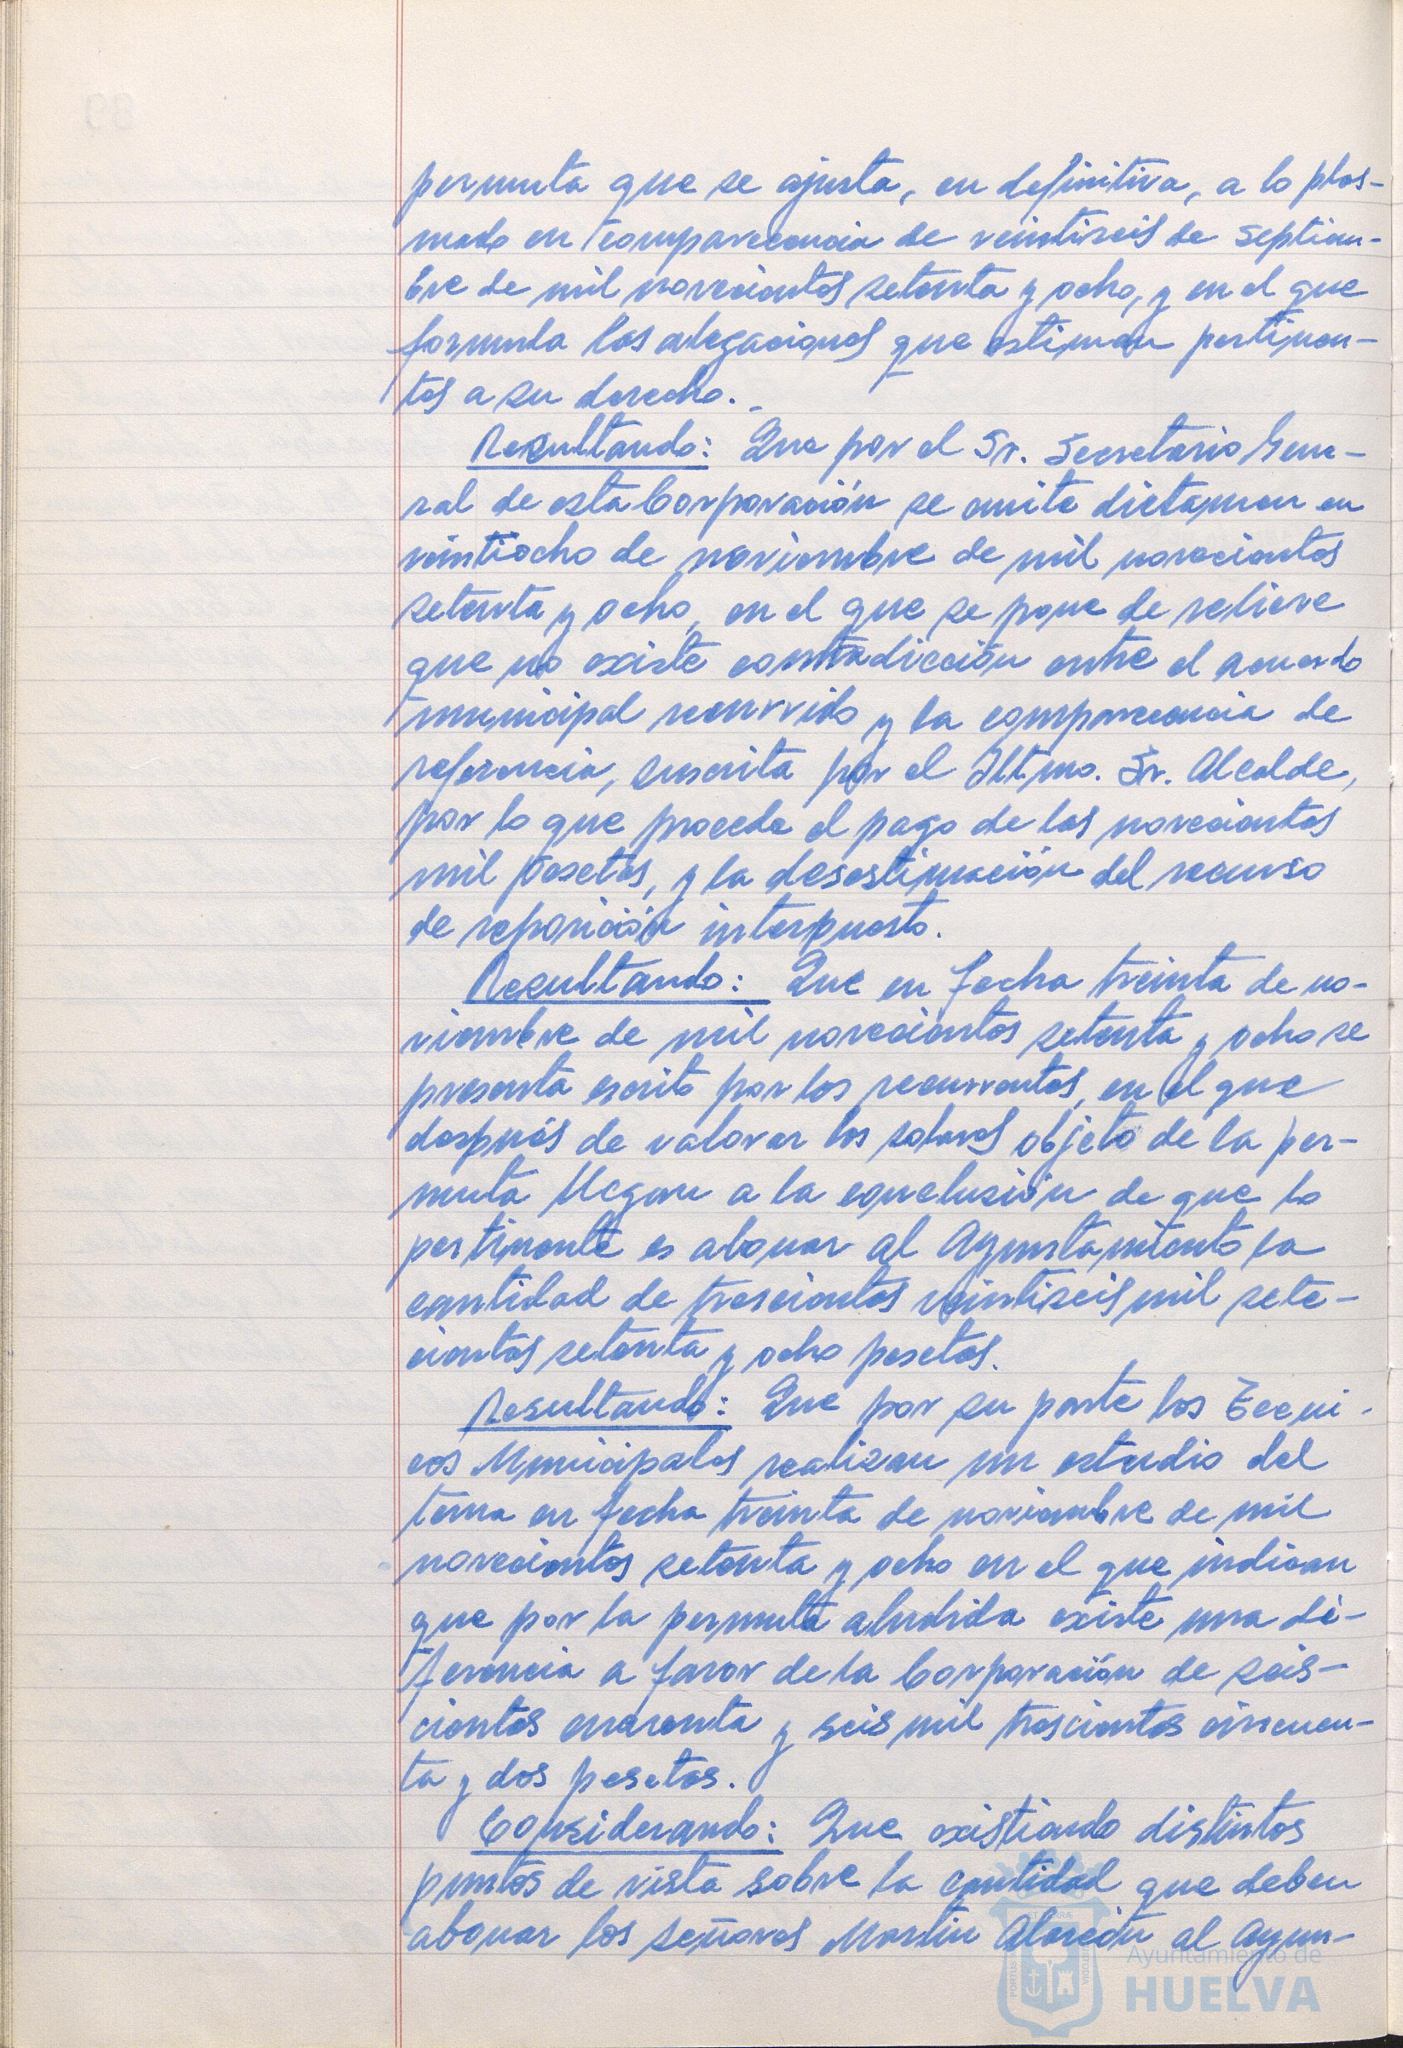 permuta que se ajusta, en definitiva, a lo plas-
mado en comparecencia de veintiseis de septiem-
bre de mil novecientos setenta y ocho, y en el que
formula las alegaciones que estiman pertinen-
tes a su derecho.-
Resultando: Que por el Sr. Secretario Gene-
ral de esta Corporación se emite dictamen en
veintiocho de noviembre de mil novecientos
setenta y ocho, en el que se pone de relieve
que no existe contradicción entre el acuerdo
municipal recurrido y la comparecencia de
referencia, suscrita por el Iltmo. Sr. Alcalde,
por lo que procede el pago de las novecientas
mil pesetas, y la desestimación del recurso
de reposición interpuesto.
Resultando: Que en fecha treinta de no-
viembre de mil novecientos setenta y ocho se
presenta escrito por los recurrentes, en el que
después de valorar los solares objeto de la per-
muta llegan a la conclusión de que lo
pertinente es abonar al Ayuntamiento la
cantidad de trescientas veintiseis mil sete-
cientas setenta y ocho pesetas.
Resultando: Que por su parte los Tecni-
cos Municipales realizan un estudio del
tema en fecha treinta de noviembre de mil
novecientos setenta y ocho en el que indican
que por la permuta aludida existe una di-
ferencia a favor de la Corporación de seis-
cientas cuarenta y seis mil trescientas cincuen-
ta y dos pesetas.
Considerando: Que existiendo distintos
puntos de vista sobre la cantidad que deben
abonar los señores Martin Alarcón al Ayun-
Ayuntamiento de
HUELVA